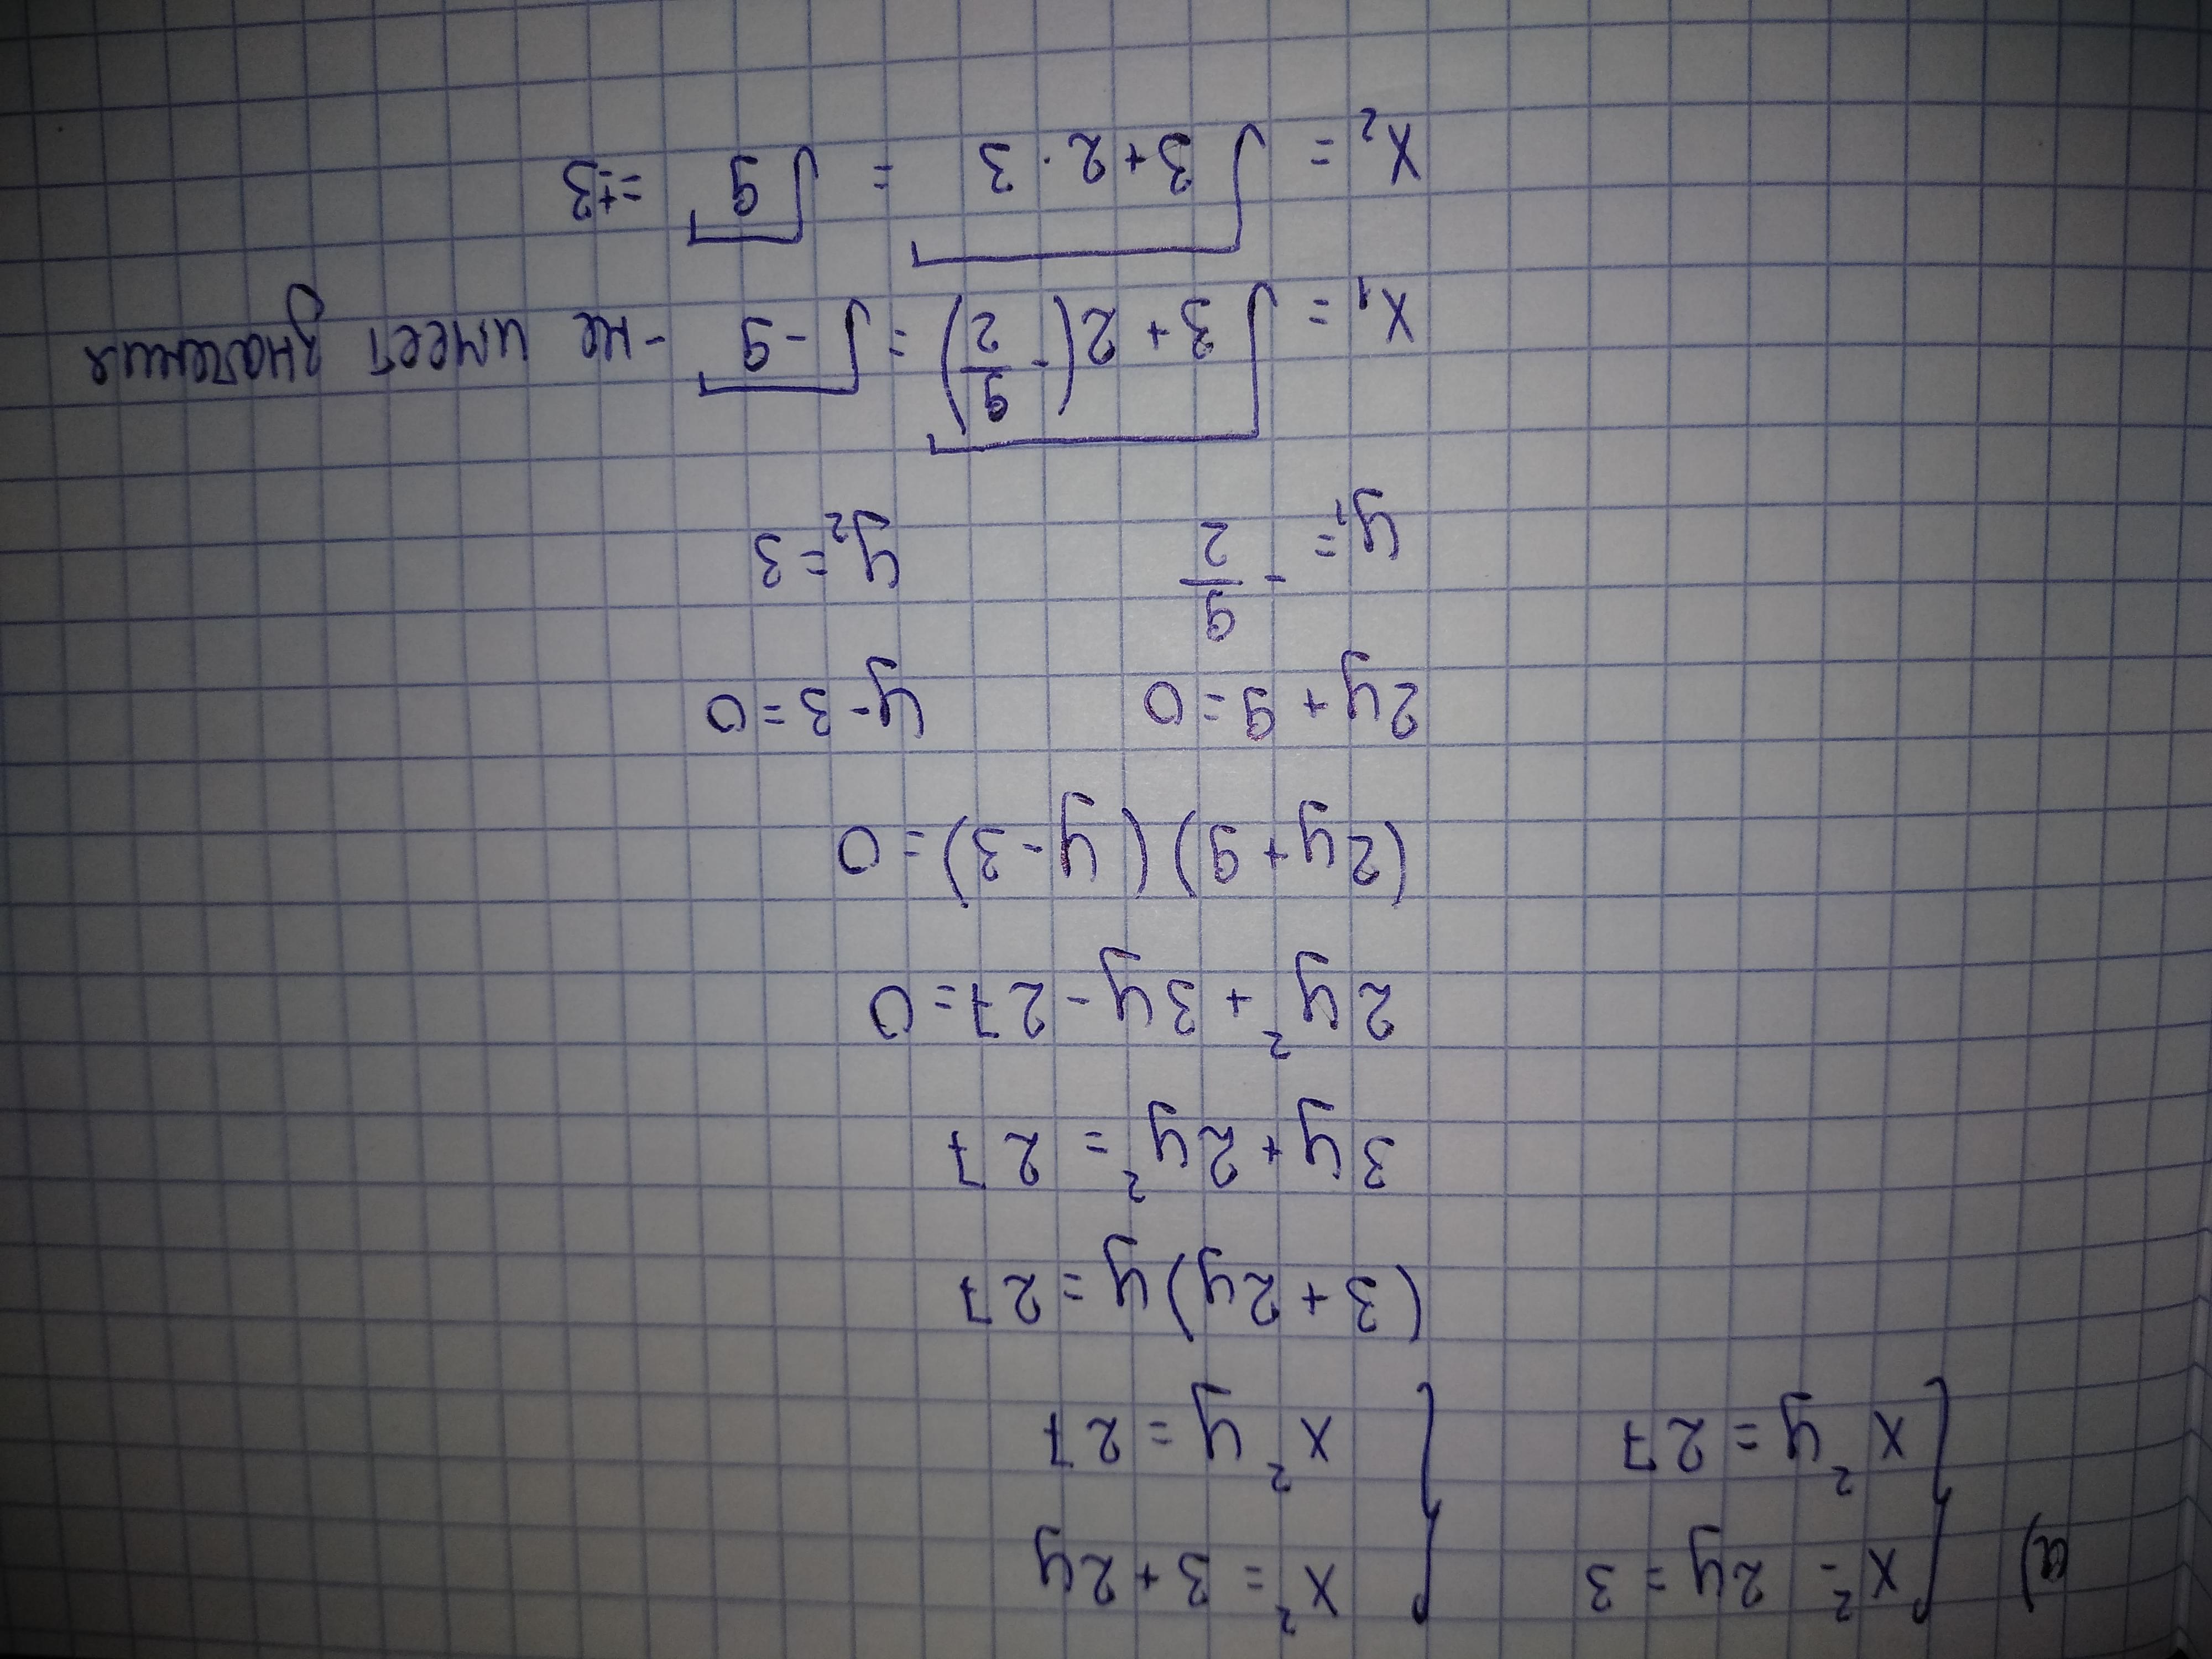 а) { x² - 2y = 3 { x² = 3 + 2y
{ x² y = 27 { x² y = 27
(3 + 2y) y = 27
3y + 2y² = 27
2y² + 3y - 27 = 0
(2y + 9) (y - 3) = 0
2y + 9 = 0 y - 3 = 0
y₁ = - 9/2 y₂ = 3
x₁ = √(3 + 2(- 9/2)) = √-9 - не имеет значения
x₂ = √(3 + 2 · 3) = √9 = ±3